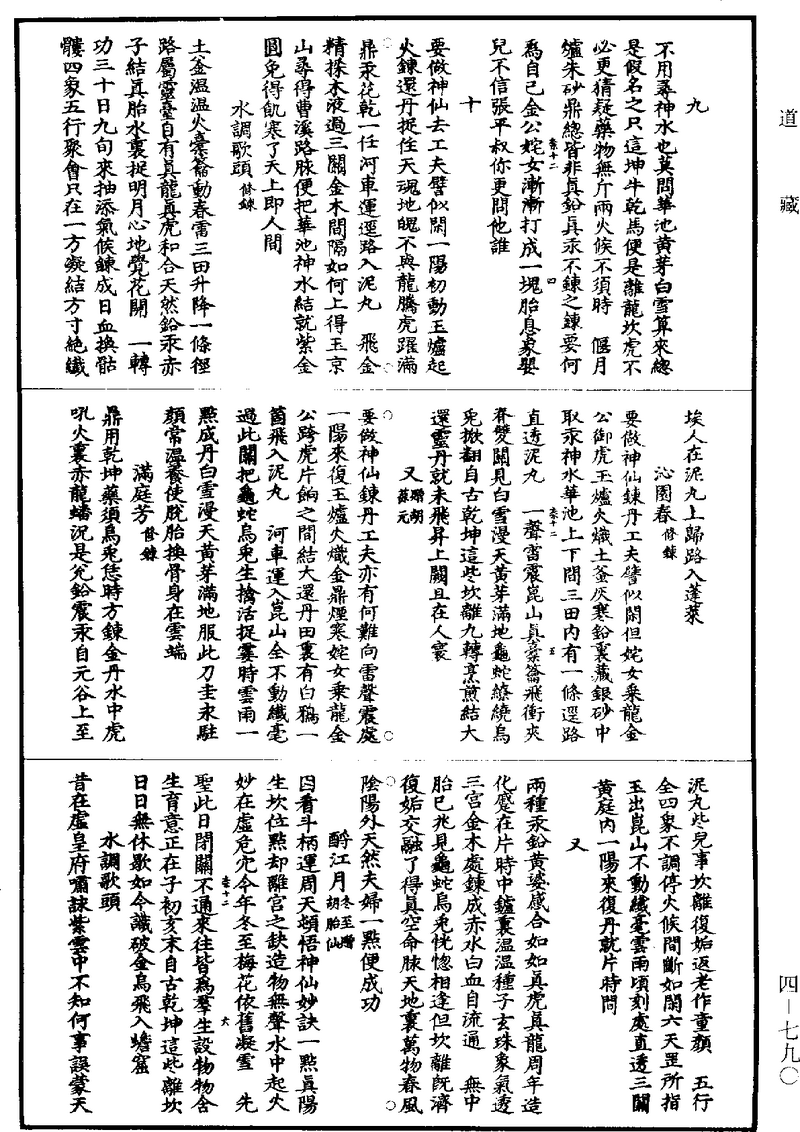 道藏
九
不用尋神水也莫問華池黃芽白雪算來總
是假名之只這坤牛乾馬便是離龍坎虎不
必更猜疑藥物無斤兩火候不須時　偃月
爐朱砂鼎總皆非眞鉛眞汞不鍊之鍊要何
卷十二　四
爲自己金公姹女漸漸打成一塊胎息象嬰
兒不信張平叔你更問他誰
十
要做神仙去工夫譬似閑一陽初動玉爐起
火鍊還丹捉住天魂地魄不與龍騰虎躍滿
鼎汞花乾一任河車運逕路入泥丸　飛金
精採木液過三關金木間隔如何上得玉京
山尋得曹溪路脉便把華池神水結就紫金
圓免得飢寒了天上即人間
水調歌頭脩鍊
土釜溫溫火橐籥動春雷三田升降一條徑
路屬靈臺自有眞龍眞虎和合天然鉛汞赤
子結眞胎水裏捉明月心地覺花開　一轉
功三十日九旬來抽添氣候鍊成日血換骷
髏四象五行聚會只在一方凝結方寸絕纖
埃人在泥丸上歸路入蓬萊
沁園春脩鍊
要做神仙鍊丹工夫譬似閑但姹女乘龍金
公御虎玉爐火熾土釜灰寒鉛裏藏銀砂中
取汞神水華池上下間三田內有一條逕路
直透泥丸　一聲雷震崑山眞橐籥飛衝夾
卷十二　五
脊雙關見白雪漫天黃芽滿地龜蛇繚繞烏
兎掀翻自古乾坤這些坎離九轉烹煎結大
還靈丹就未飛昇上闕且在人寰
又贈胡葆元
要做神仙鍊丹工夫亦有何難向雷聲震處
一陽來復玉爐火熾金鼎煙寒姹女乘龍金
公跨虎片餉之間結大還丹田裏有白鴉一
箇飛入泥丸　河車運入崑山全不動纖毫
過此關把龜蛇烏兎生擒活捉霎時雲雨一
點成丹白雪漫天黃芽滿地服此刀圭永駐
顏常溫養使脫胎換骨身在雲端
滿庭芳脩鍊
鼎用乾坤藥須烏兎恁時方鍊金丹水中虎
吼火裏赤龍蟠況是兌鉛震汞自元谷上至
泥丸些兒事坎離復姤返老作童顏　五行
全四象不調停火候間斷如閑六天罡所指
玉出崑山不動纖毫雲雨頃刻處直透三關
黃庭內一陽來復丹就片時間
又
兩種汞鉛黃婆感合如如眞虎眞龍周年造
化蹙在片時中鑪裏溫溫種子玄珠象氣透
三宮金木處鍊成赤水白血自流通　無中
胎已兆見龜蛇烏兎恍惚相逢但坎離旣濟
復姤交融了得眞空命脉天地裏萬物春風
陰陽外天然夫婦一點便成功
酹江月冬至贈胡胎仙
因看斗柄運周天頓悟神仙妙訣一點眞陽
生坎位點却離宮之缺造物無聲水中起火
妙在虛危穴今年冬至梅花依舊凝雪　先
卷十二　六
聖此日閉關不通來往皆爲羣生設物物含
生育意正在子初亥末自古乾坤這些離坎
日日無休歇如今識破金烏飛入蟾窟
水調歌頭
昔在虛皇府嘯詠紫雲中不知何事誤蒙天
四－七九〇